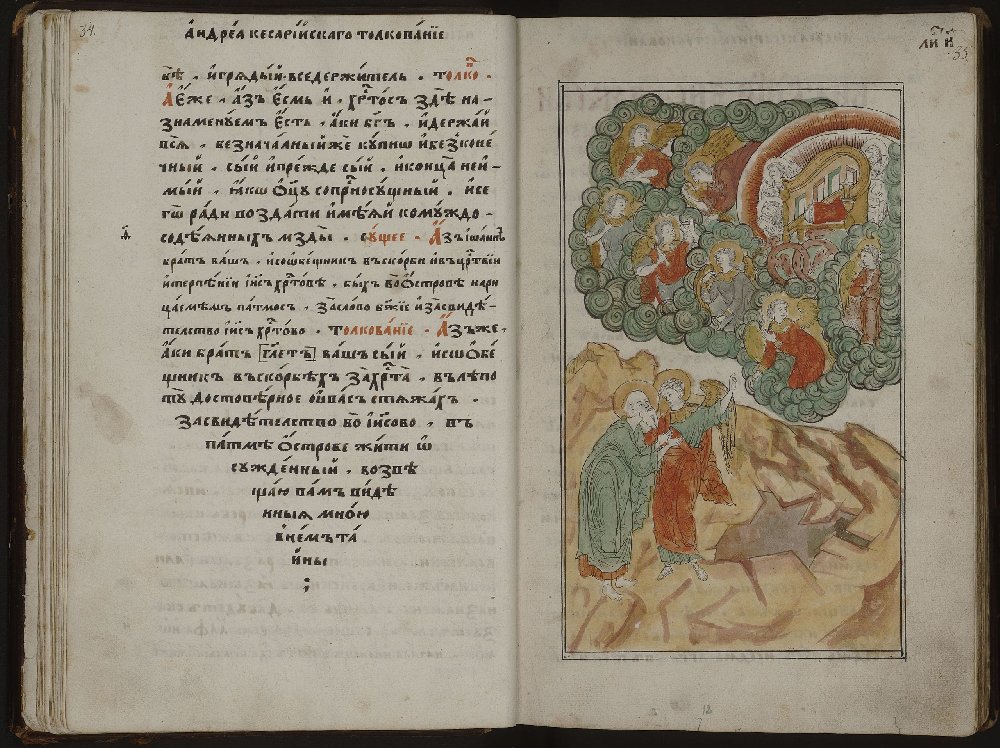 34.
а҆ндре́а кесарі́йскаго толкова́нїе
бѣ̀ . и҆ гряды́й . вседержи́тель . толко .
А҆́ Е҆́же . а҆́зъ є҆́смь и҆ . хрⷭ҇то́съ здѣ̀ на-
знаменꙋемъ є҆́сть . а҆́ки бг҃ъ . и҆ держа́й
всѧ̑ . безнача́лный же кꙋпнѡ и҆ безконе́-
чный . сы́й и҆ пре́жде сы́й . и҆ конца̀ не и҆-
мы́й . ꙗ҆́кѡ ѻ҆ц҃ꙋ соприсносꙋ́щный . и҆ се-
гѡ̀ ра́ди возда́ти и҆мѣ́ѧй комꙋ́ждо-
содѣ́ѧнныхъ мздꙋ̀ . сꙋ́щее . А҆́зъ і҆ѡа́ннъ
бра́тъ ва́шъ . и҆ соѡ҆бещникъ въ ско́рби и҆ въ цр҃твїи
и҆ терпѣ́нїи і҆и҃съ хрⷭ҇то́вѣ . бы́хъ во ѻ҆́стровѣ нари
ца́емѣмъ па́тмосъ . за сло́во бж҃їе и҆ за свидѣ́-
телство і҆и҃съ хрⷭ҇то́во . Толкова́нїе . А҆́зъ же .
а҆́ки бра́тъ [гл҃етъ] ва́шъ сы́й . и҆ соѻ҆бе́-
щникъ въ ско́рбѣхъ за хрⷭ҇та̀ . въ лѣ́по
тꙋ̀ достовѣ́рное ѹ҆ ва́съ стѧжа́хъ .
за свидѣ́телство бо і҆и҃сово . въ
па́тмѣ ѻ҆́строве жи́ти ѡ҆
сꙋжде́нный . возвѣ
ща́ю ва́мъ ви́дѣ
нныѧ мно́ю
в не́мъ та́
йны
;
ли н҃
35